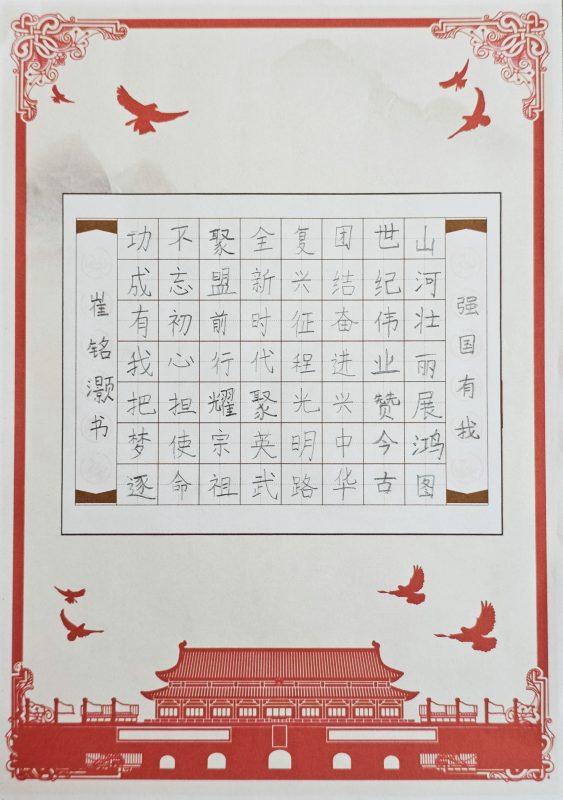 强国有我
山河壮丽展鸿图
世纪伟业赞今古
团结奋进兴中华
复兴征程光明路
全新时代聚英武
聚盟前行耀宗祖
不忘初心担使命
功成有我把梦逐
崔铭灏书